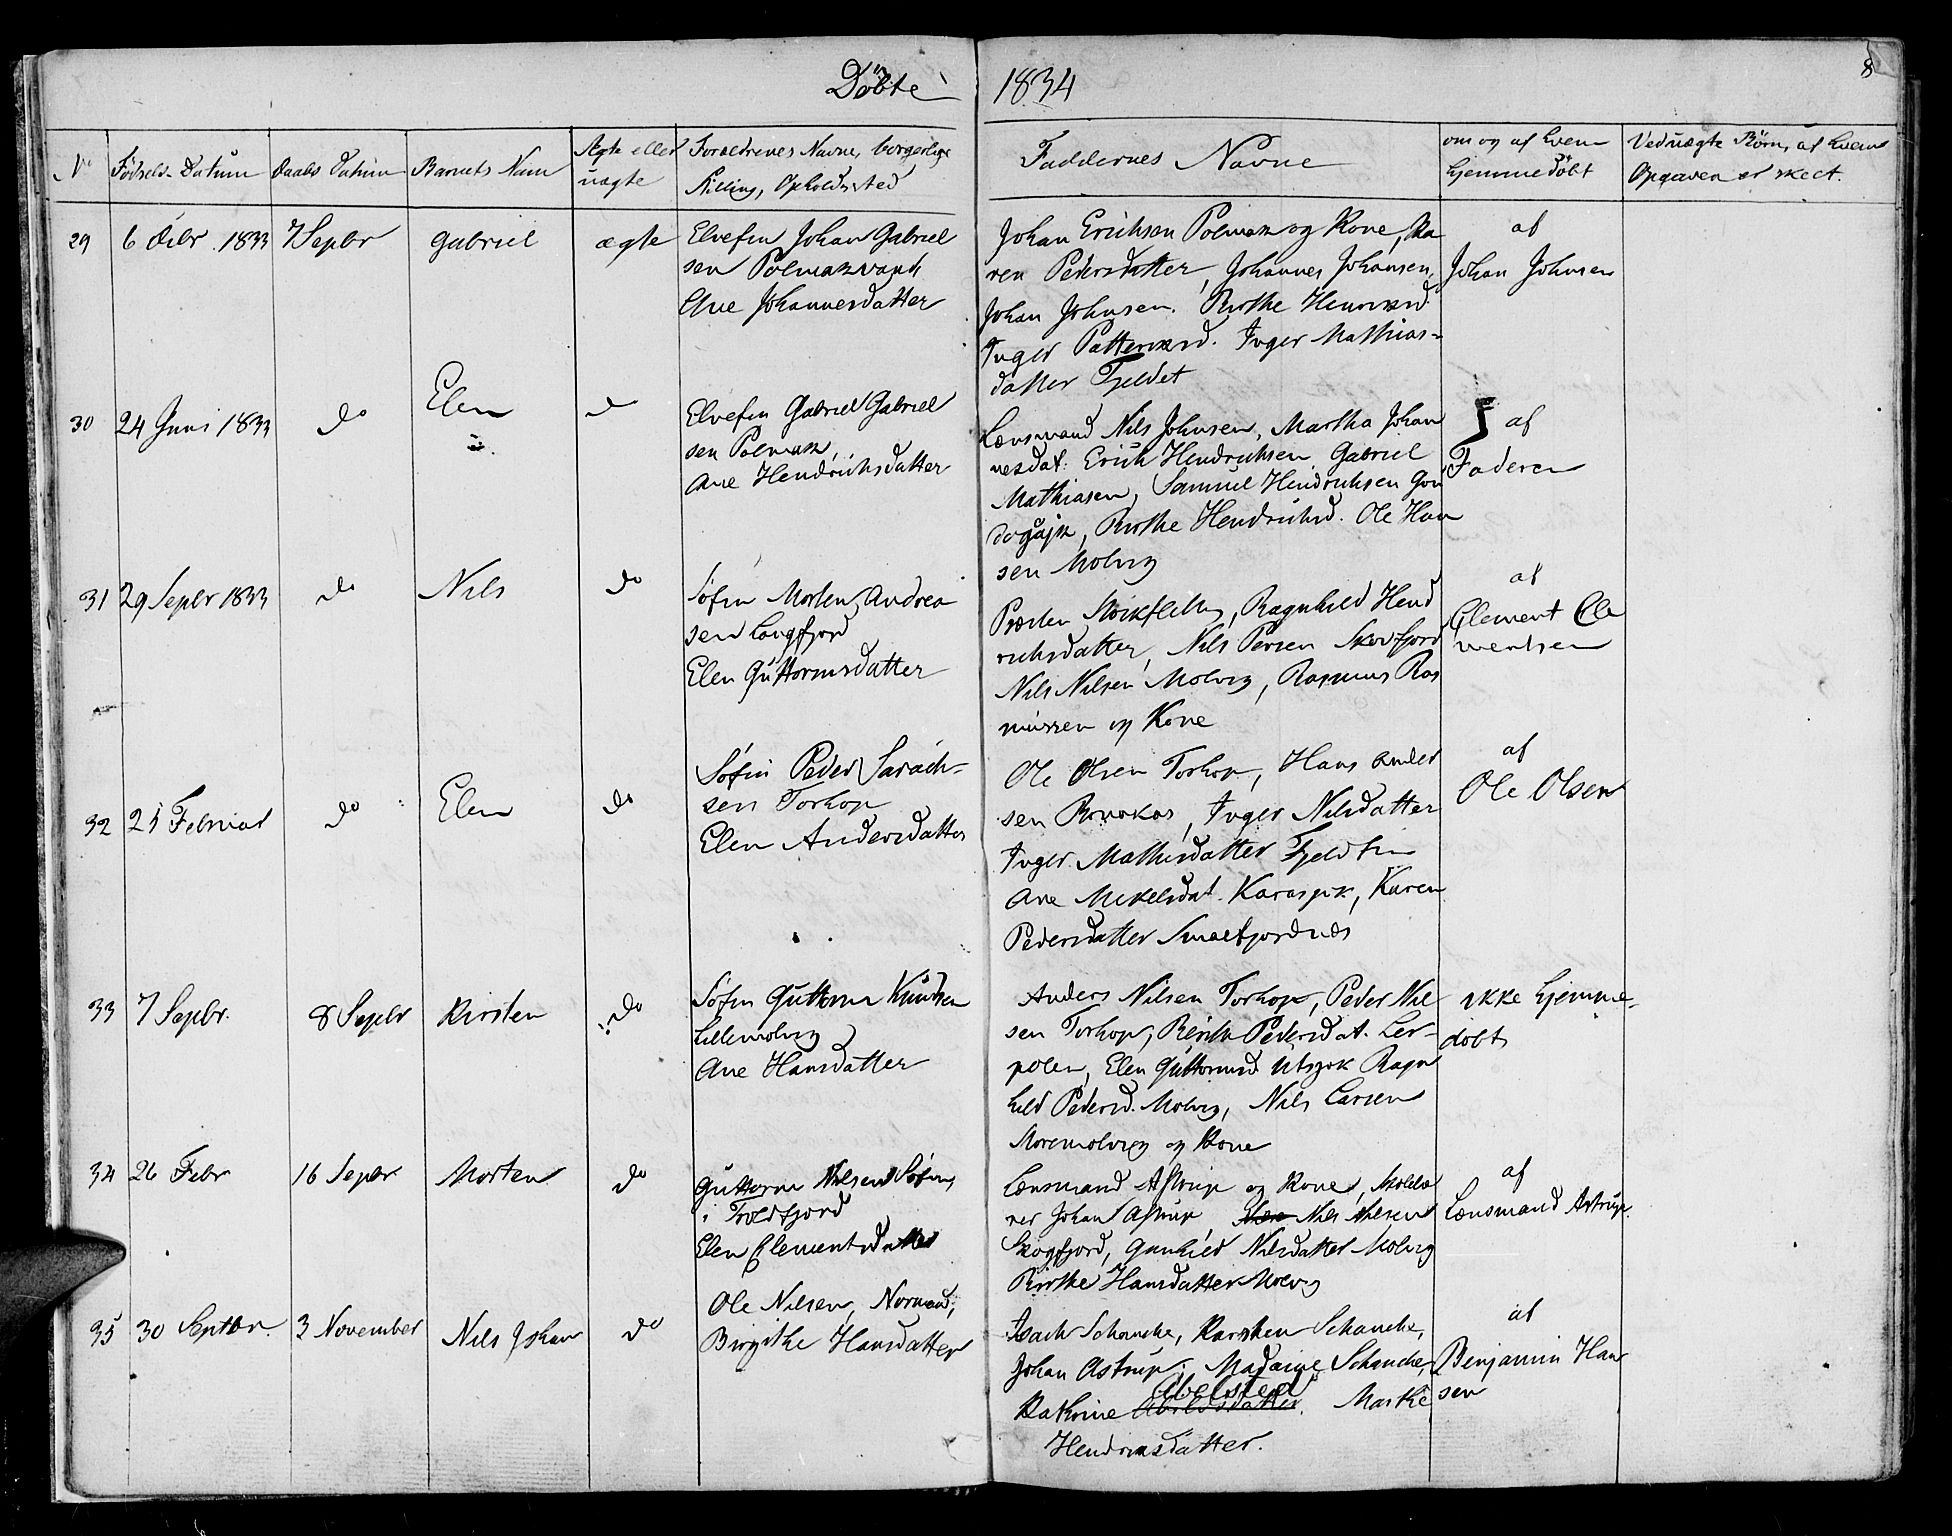 Döbte 1834
8
No
Födsels Datum
Daabs Datum
Barnets Navn
Ægte eller
uægte
Forældrenes Navne, borgerlige
Stilling, Opholdssted
Faddernes Navne
om og af hvem
hjemmedöbt
Ved uægte Börn, af hvem
Opgaven er skeet.
29 6 Debr. 1833 7 Sepbr Gabriel ægte
Elvefin Johan Gabriel
sen Polmakvand
Ane Johannesdatter
Johan Erichsen Polmak og Kone, Ka
ren Pedersdatter, Johannes Johansen,
Johan Johnsen. Birthe
Inger Inger Mathias-
datter Fjeldet
af
Johan Johnsen
30 24 Juni 1833 do Elen do
Elvefin Gabriel Gabriel
sen Polmak,
Ane Hendrichsdatter
Lensmand Nils Johnsen, Martha Johan
nesdat: Erich Hendrichsen Gabriel
Mathiasen, Samuel Hendrichsen
Birthe Hendrichsd. Ole Han
sen Molvig
af
Faderen
31 29 Sepbr 1833 do Nils do
Söfin Morten Andrea
sen Langfjord
Elen Guttormsdatter
Præsten Stockfleth, Ragnhild Hend
richsdatter, Nils Persen
Nils Nilsen Molvig, Rasmus Ras
mussen og Kone
af
Clement Cle
mentsen
32 25 Februar do Elen do
Söfin Peder Sarach-
sen Torhop
Elen Andersdatter
Ole Olsen Torhop, Hans Ander
sen Inger Nilsdatter
Inger Mathisdatter Fjeldfin
Ane Mikelsdat. Karasjok, Karen
Pedersdatter Smalfjordnæs
af
Ole Olsen
33 7 Sepbr. 8 Sepbr Kirsten do
Söfin Guttorm Knudsen
Lillemolvig
Ane Hansdatter
Anders Nilsen Torhop, Peder Nil
sen Torhop, Berith Pedersdat. Ler-
polen, Elen Guttormsd Utsjok Ragn
hild Pedersd. Molvig, Nils Larsen
Storemolvig og Kone
ikke hjemme-
döbt
34 26 Febr 16 Sepbr Morten do
Guttorm Nilsen Söfin,
i Troldfjord
Elen Clementsdatter
Lensmand Astrup og Kone, Skolelæ
rer Johan Astrup, Nils Nilsen
Skogfjord, Gunhild Nilsdatter Molvig
Birthe Hansdatter Molvig
af
Lensmand Astrup.
35 30 Septbr. 3 November Nils Johan do
Ole Nilsen, Normand,
Birgithe Hansdatter
Isach Schancke, Karsten Schancke,
Johan Astrup. Madame Schancke,
Abelsted
Kathrine Marthe
Hendricsdatter.
af
Benjamin Han
sen